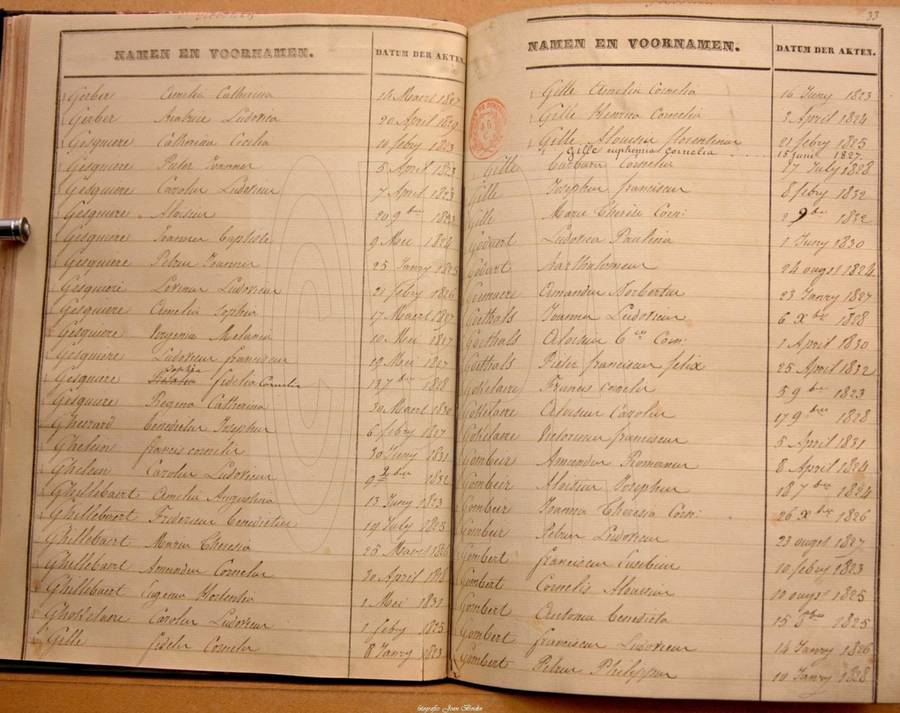 NAMEN EN VOORNAMEN. DATUM DER AKTEN.
Gerber Amelia Catharina 24 Maert 1827
Gerber Ludovica 20 April 1829
Gesquiere Catharina Cecilia 11 febry 1823
Gesquiere Pieter Joannes 5 April 1823
Gesquiere Carolus Ludovicus 7 April 1823
Gesquiere Aloisius 20 9bre 1823
Gesquiere Joannes Baptiste 9 Mei 1824
Gesquiere Petrus Joannes 25 Janry 1825
Gesquiere Livinus Ludovicus 21 febry 1826
Gesquiere Amelia Sophia 17 Maert 1827
Gesquiere Virginia Melania 10 Mei 1827
Gesquiere Ludovicus franciscus 19 Mei 1827
Gesquiere Sophia fidelia Cornelia 7bre 1828
Gesquiere Regina Catharina 30 Maert 1830
Gheeraard benedictus Josephus 6 febry 1827
Ghelein francis cornelis 30 Juny 1831
Ghelein Carolus Ludovicus 1832
Ghillebaert Amelia Augustina 13 Juny 1823
Ghillebaert Fredericus benedictus 19 July 1825
Ghillebaert Maria Theresia 25 Maert
Ghillebaert Amandus Cornelius 30 April 1828
Ghillebaert Eugenia Hortentia 1 Mei 1831
Carolus Ludovicus 1 feby 1825
Gille fidelis Cornelis 8 Janry 1823
33
NAMEN EN VOORNAMEN. DATUM DER AKTEN.
Gille Amelia Cornelia 16 Juny 1823
Gille Henrica Cornelia 3 April 1824
Gille Aloisius florentinus 21 febry 1825
Gille euphemia Cornelia 15 juni 1827
Gille Barbara Cornelia 17 July 1828
Gille Josephus franciscus 8 febry 1832
Gille Marie Therese Corn: 2 9bre 1832
Godaert Ludovica Paulina 1 Juny 1830
Godart Bartholomeus 24 augst 1824
Goemaere Amandus Norbertus 23 Janry 1827
Goethals Joannes Ludovicus 6 Xbre 1828
Goethals Aloisius Corn: 1 April 1830
Goethals Pieter franciscus felix 25 April 1832
Gokelaire Francis cornelis 5 9bre 1823
Gokelaire Aloisius Carolus 17 9bre 1828
Gokelaire Victorinus franciscus 5 April 1831
Gombeir Amandus Romanus 8 April 1824
Gombeir Aloisius Josephus 18 7bre 1824
Gombeir Joanna Theresia Corn: 26 Xbre 1826
Gombeir Petrus Ludovicus 23 augst 1827
Gombert franciscus Eusebius 10 febry 1823
Gombert Cornelis Aloisius 10 augst 1825
Gombert Antonia benedicta 15 8bre 1825
Gombert franciscus Ludovicus 14 Janry 1826
Gombert Petrus Philippus 19 Janry 1828